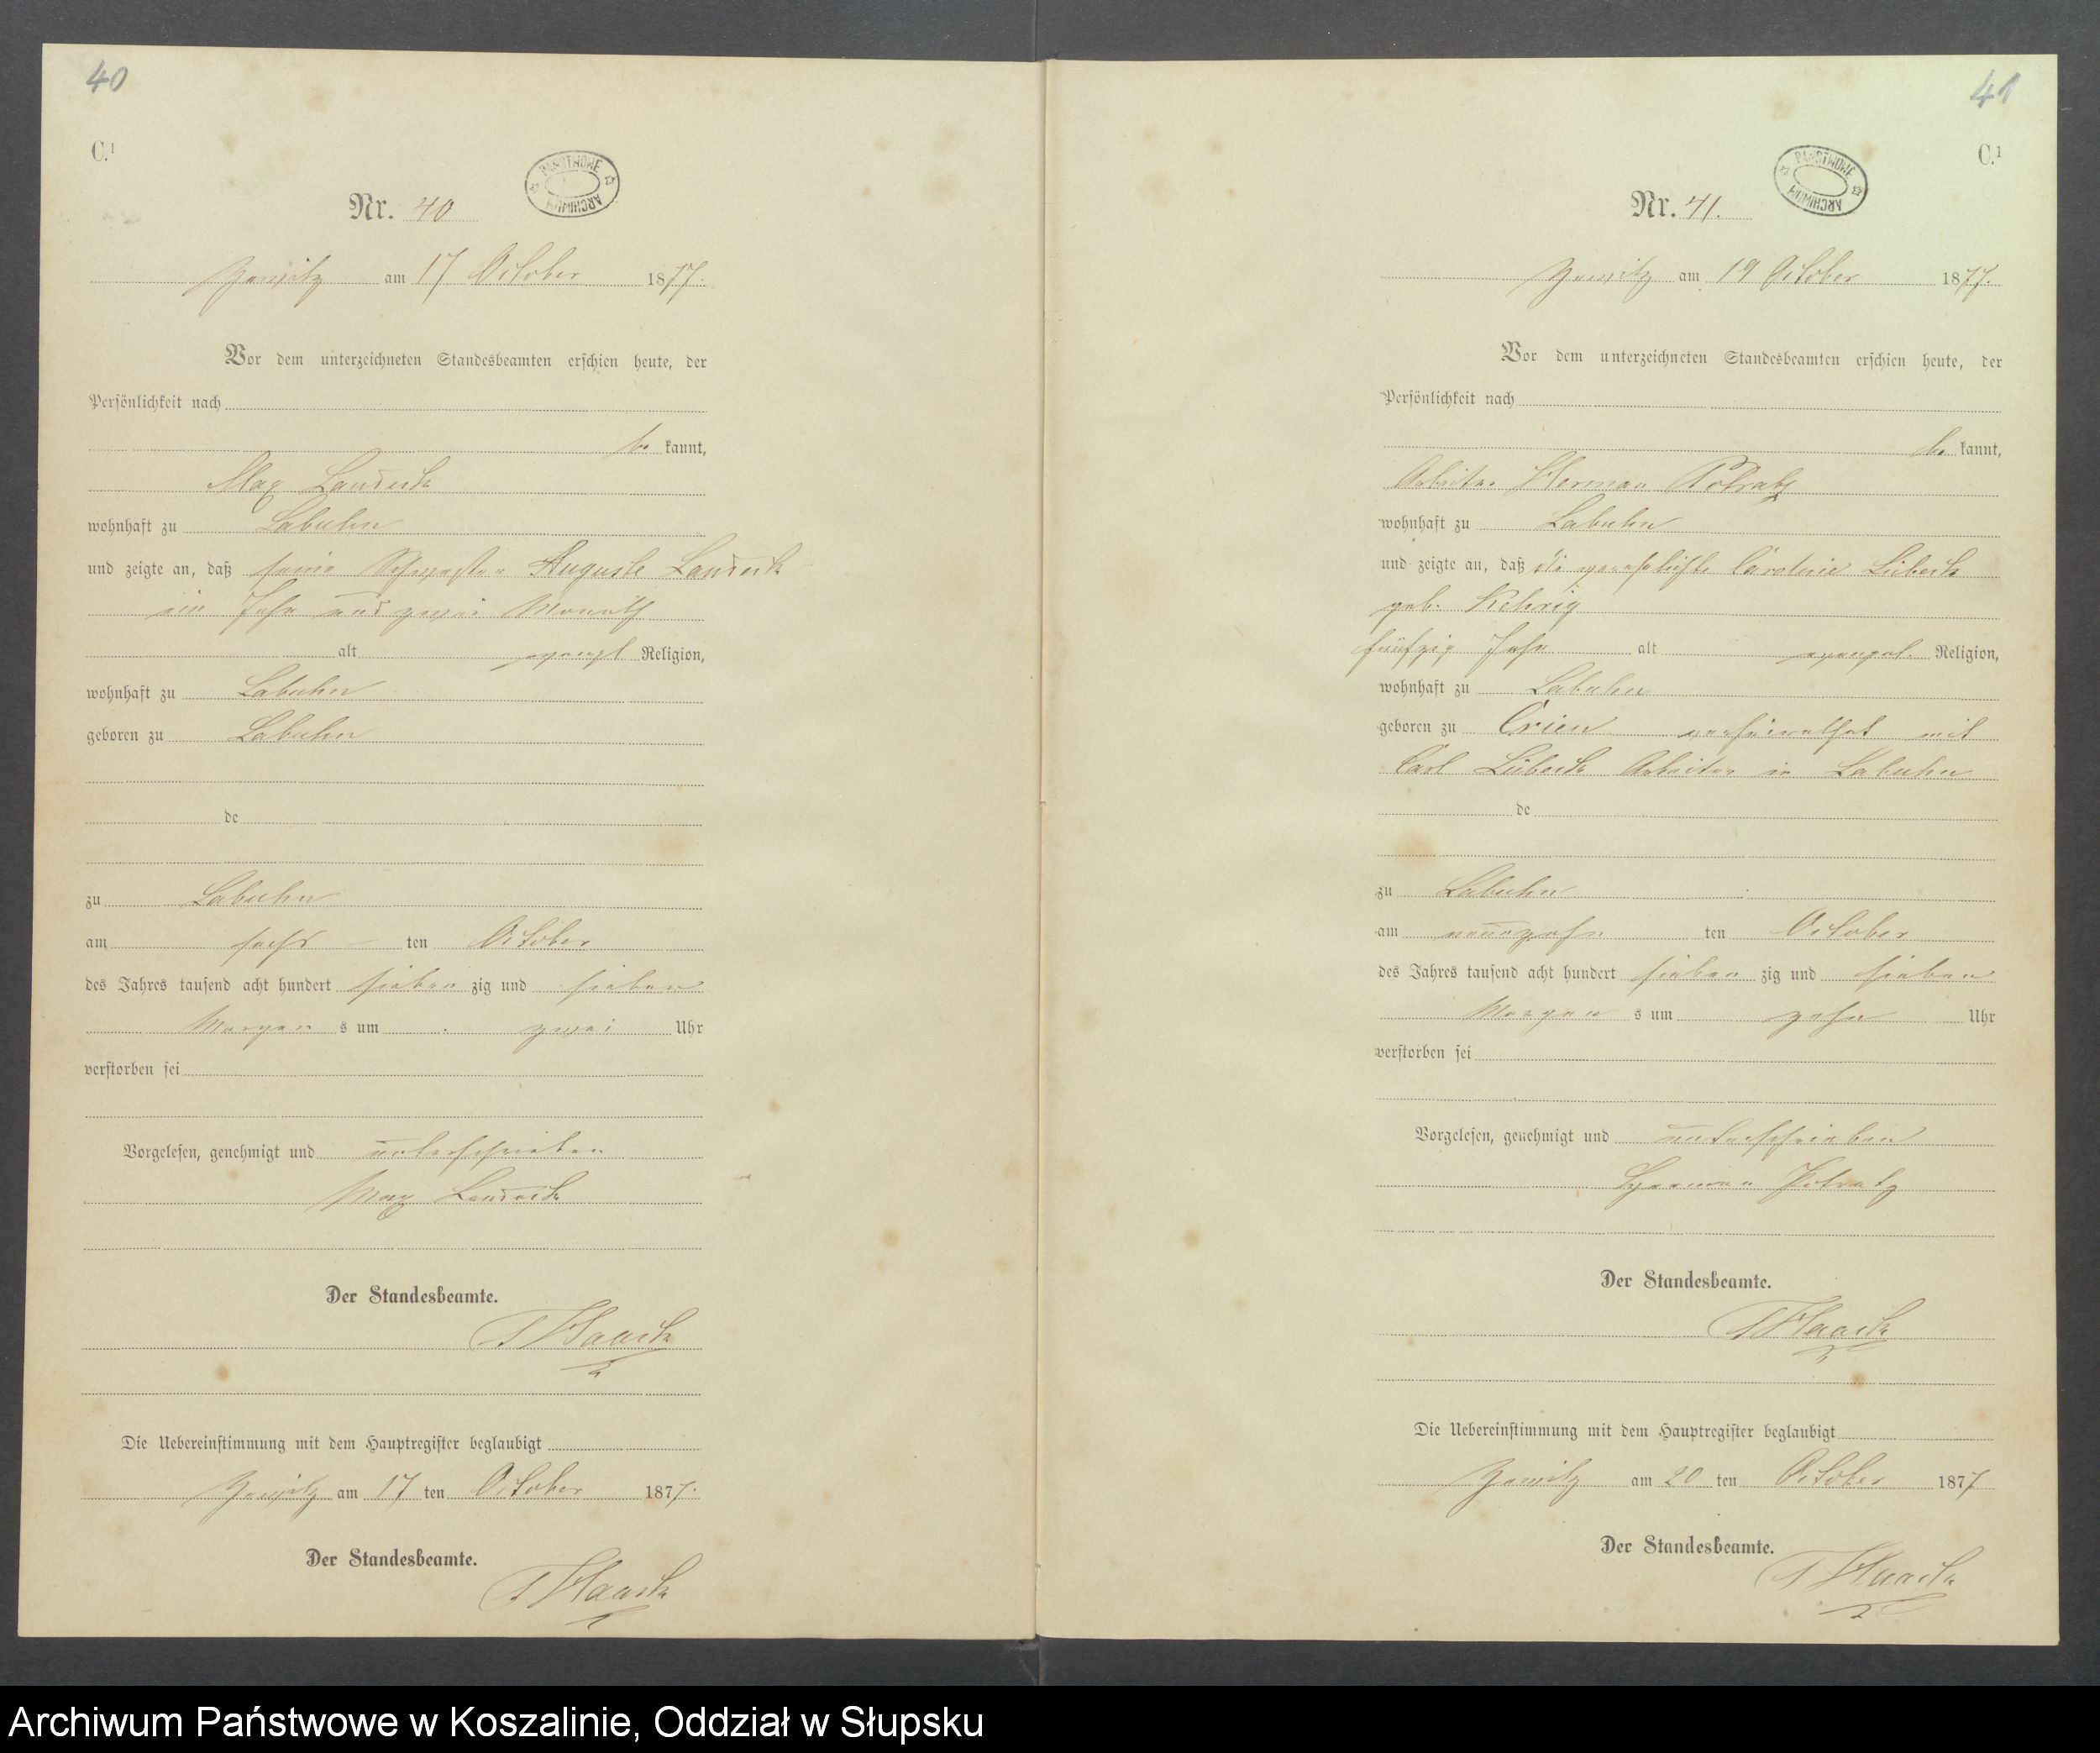 40
C.1
PAŃSTWOWE ARCHIWUM
Nr. 40
Zewitz am 17 October 1877.
Vor dem unterzeichneten Standesbeamten erschien heute, der
Persönlichkeit nach
be kannt,
Max Laudeck
wohnhaft zu Labuhn
und zeigte an, daß seine Schwester Auguste Laudeck
ein Jahr und zwei Monath
alt evangl Religion,
wohnhaft zu Labuhn
geboren zu Labuhn
de
zu Labuhn
am sechs ten October
des Jahres tausend acht hundert sieben zig und sieben
Morgen s um zwei Uhr
verstorben sei
Vorgelesen, genehmigt und unterschrieben
Max Laudeck
Der Standesbeamte.
Haack
Die Uebereinstimmung mit dem Hauptregister beglaubigt
Zewitz am 17 ten October 1877.
Der Standesbeamte.
Haack
41
C.1
PAŃSTWOWE ARCHIWUM
Nr. 41.
Zewitz am 19 October 1877.
Vor dem unterzeichneten Standesbeamten erschien heute, der
Persönlichkeit nach
be kannt,
Arbeiter Herman Potratz
wohnhaft zu Labuhn
und zeigte an, daß die verehelichte Caroline Lübeck
geb. Kehrig
fünfzig Jahr alt evangel. Religion,
wohnhaft zu Labuhn
geboren zu Crien verheirathet mit
Carl Lübeck Arbeiter in Labuhn
de
zu Labuhn
am neunzehn ten October
des Jahres tausend acht hundert sieben zig und sieben
Morgen s um zehn Uhr
verstorben sei
Vorgelesen, genehmigt und unterschrieben
Herman Potratz
Der Standesbeamte.
Haack
Die Uebereinstimmung mit dem Hauptregister beglaubigt
Zewitz am 20 ten October 1877
Der Standesbeamte.
Haack
Archiwum Państwowe w Koszalinie, Oddział w Słupsku